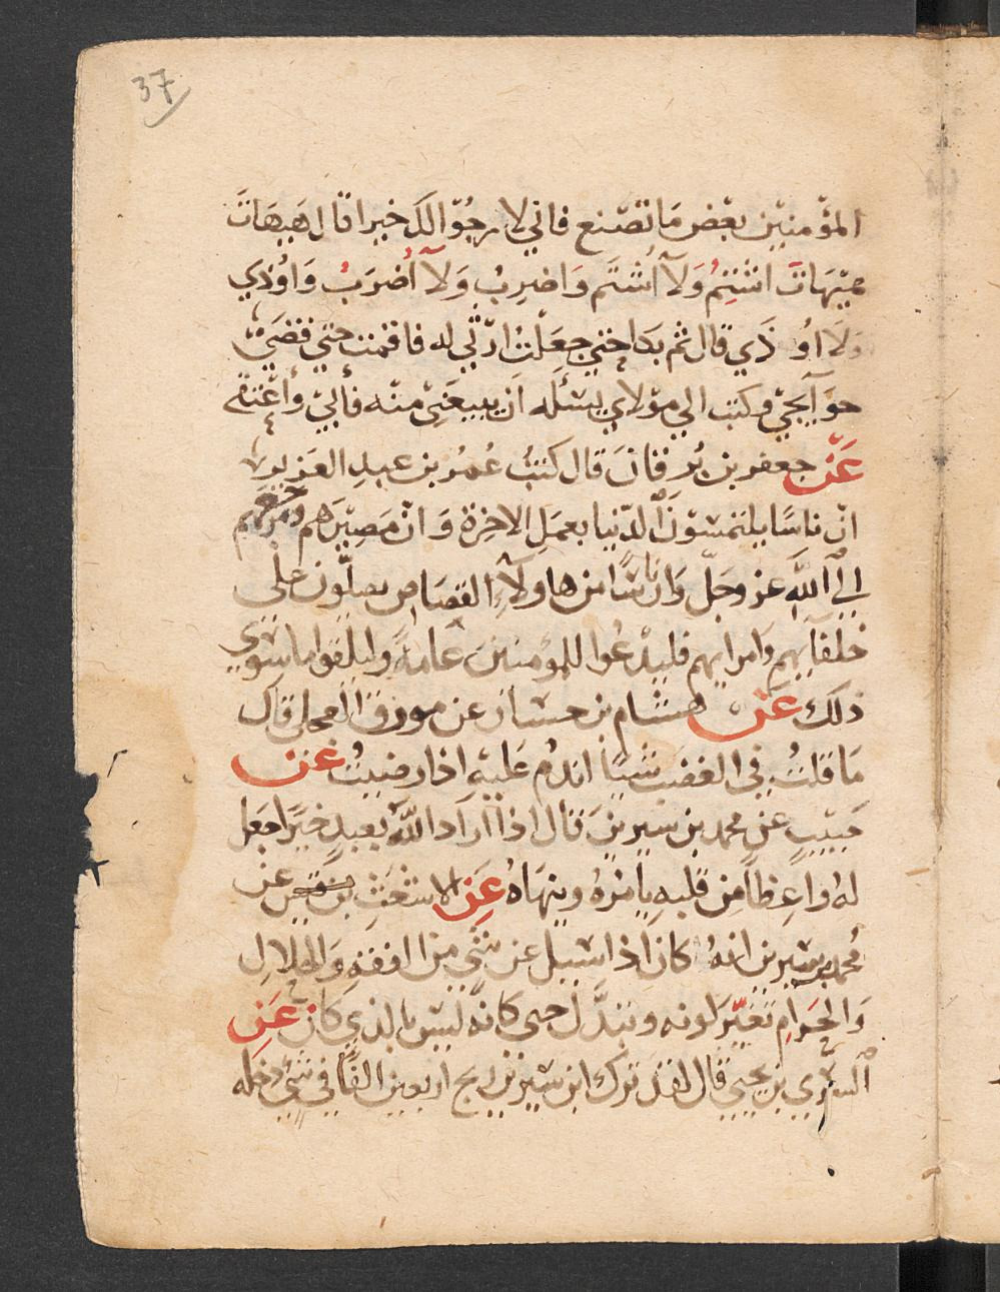 37
المؤمنين بعض ما تصنع فاني لا رجوا لك خيرا قال هيهات
هيهات اشتم ولا اُشتم واضرب ولا اُضرب واُوذي
ولا اُوذي قال ثم بدا حتي جعلت ارثي له فاقمت حتي قضي
حوايجي وكتب الي مولاي يسئله ان يبيعني منه فابي واعتقه
عن جعفر بن برقان قال كتب عمر بن عبد العزيز
ان ناسا يلتمسون الدنيا بعمل الاخرة وان مصيرهم ومرجعهم
الي الله عز وجل وان ناسا من هاولاء القصاص يصلون علي
خلفايهم وامرايهم فليدعوا للمؤمنين عامة وليلقوا ما سوي
ذلك عن هشام بن حسان عن مورق العجلي قال
ما قلت في الغضب شيئا اندم عليه اذا رضيت عن
حبيب عن محمد بن سيرين قال اذا اراد الله بعبد خيرا جعل
له واعظا من قلبه يامره وينهاه عن الاشعث بن عن
محمد بن سيرين انه كان اذا سيل عن شي من الفقه والحلال
والحرام تغير لونه وتبدل حتى كانه ليس بالذي كان عن
السري بن يحيي قال لقد ترك ابن سيرين ربح اربعين الفا في شي دخله